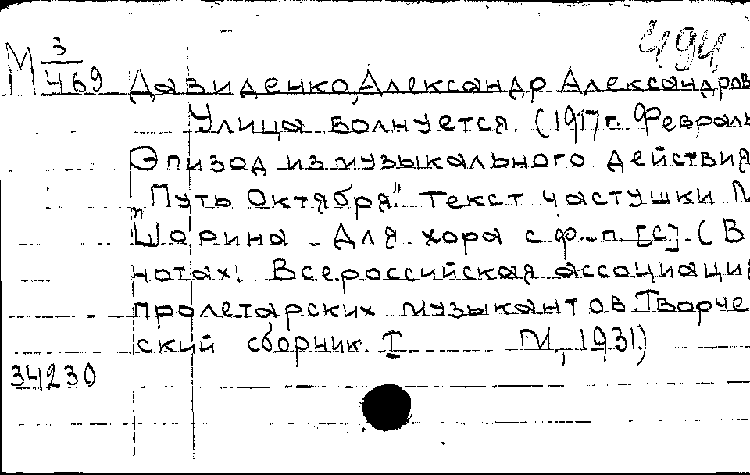 494
М 3/469 Давиденко, Александр Александров
Улица волнуется. (1917 г. Февраль
Эпизод из музыкального действия
"Путь Октября". Текст частушки М
Шорина - Для хора с ф.-п. [С]. (В
нотах: Всероссийская ассоциация
пролетарских музыкантов. Творче-
ский сборник I М., 1931)
34230